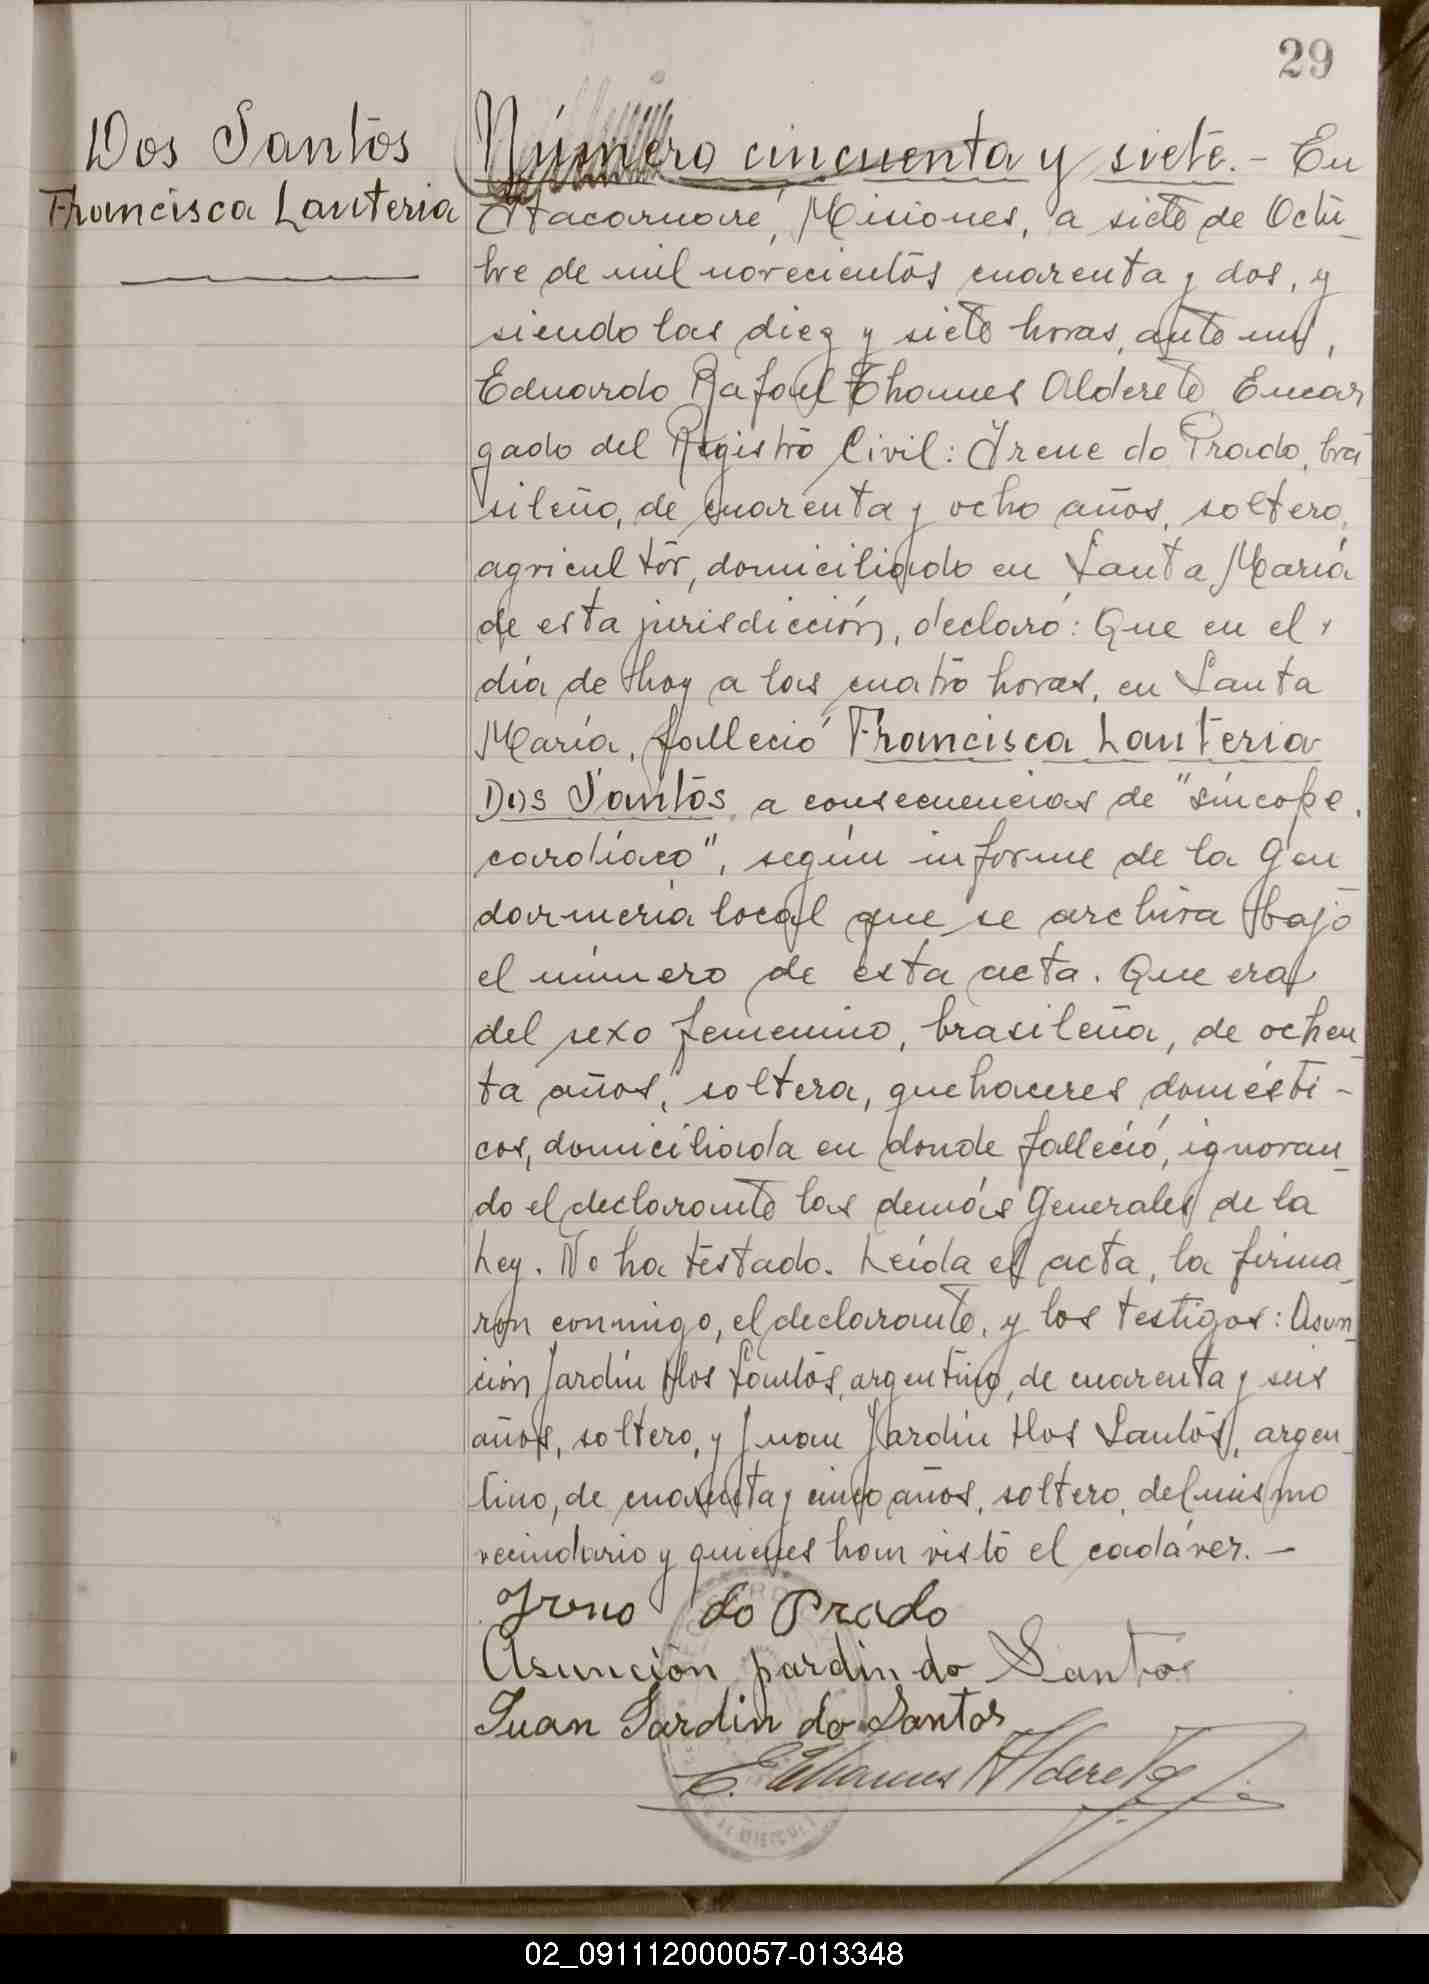 29
Dos Santos
Francisca Lauteria
Número cincuenta y siete.- En
Itacaruaré, Misiones, a siete de Octu_
bre de mil novecientos cuarenta y dos, y
siendo las diez y siete horas, ante mí,
Eduardo Rafael Thames Alderete Encar
gado del Registro Civil: Irene do Prado, bra_
sileño, de cuarenta y ocho años, soltero,
agricultor, domiciliado en Santa María
de esta jurisdicción, declaró: Que en el
día de hoy a las cuatro horas, en Santa
María, falleció Francisca Lauteria
Dos Santos, a consecuencias de "síncope
cardíaco", según informe de la Gen
darmería local que se archiva bajo
el número de esta acta. Que era
del sexo femenino, brasileña, de ochen_
ta años, soltera, quehaceres domésti-
cos, domiciliada en donde falleció, ignoran_
do el declarante las demás Generales de la
Ley. No ha testado. Leída el acta, la firma_
ron conmigo, el declarante, y los testigos: Asun_
ción Jardín dos Santos, argentino, de cuarenta y seis
años, soltero, y Juan Jardín dos Santos, argen_
tino, de cuarenta y cinco años, soltero, del mismo
vecindario y quienes han visto el cadáver.-
Ireno do Prado
Asunción jardin do Santos
Juan Jardin do Santos
E. Thames Alderete
02_091112000057-013348